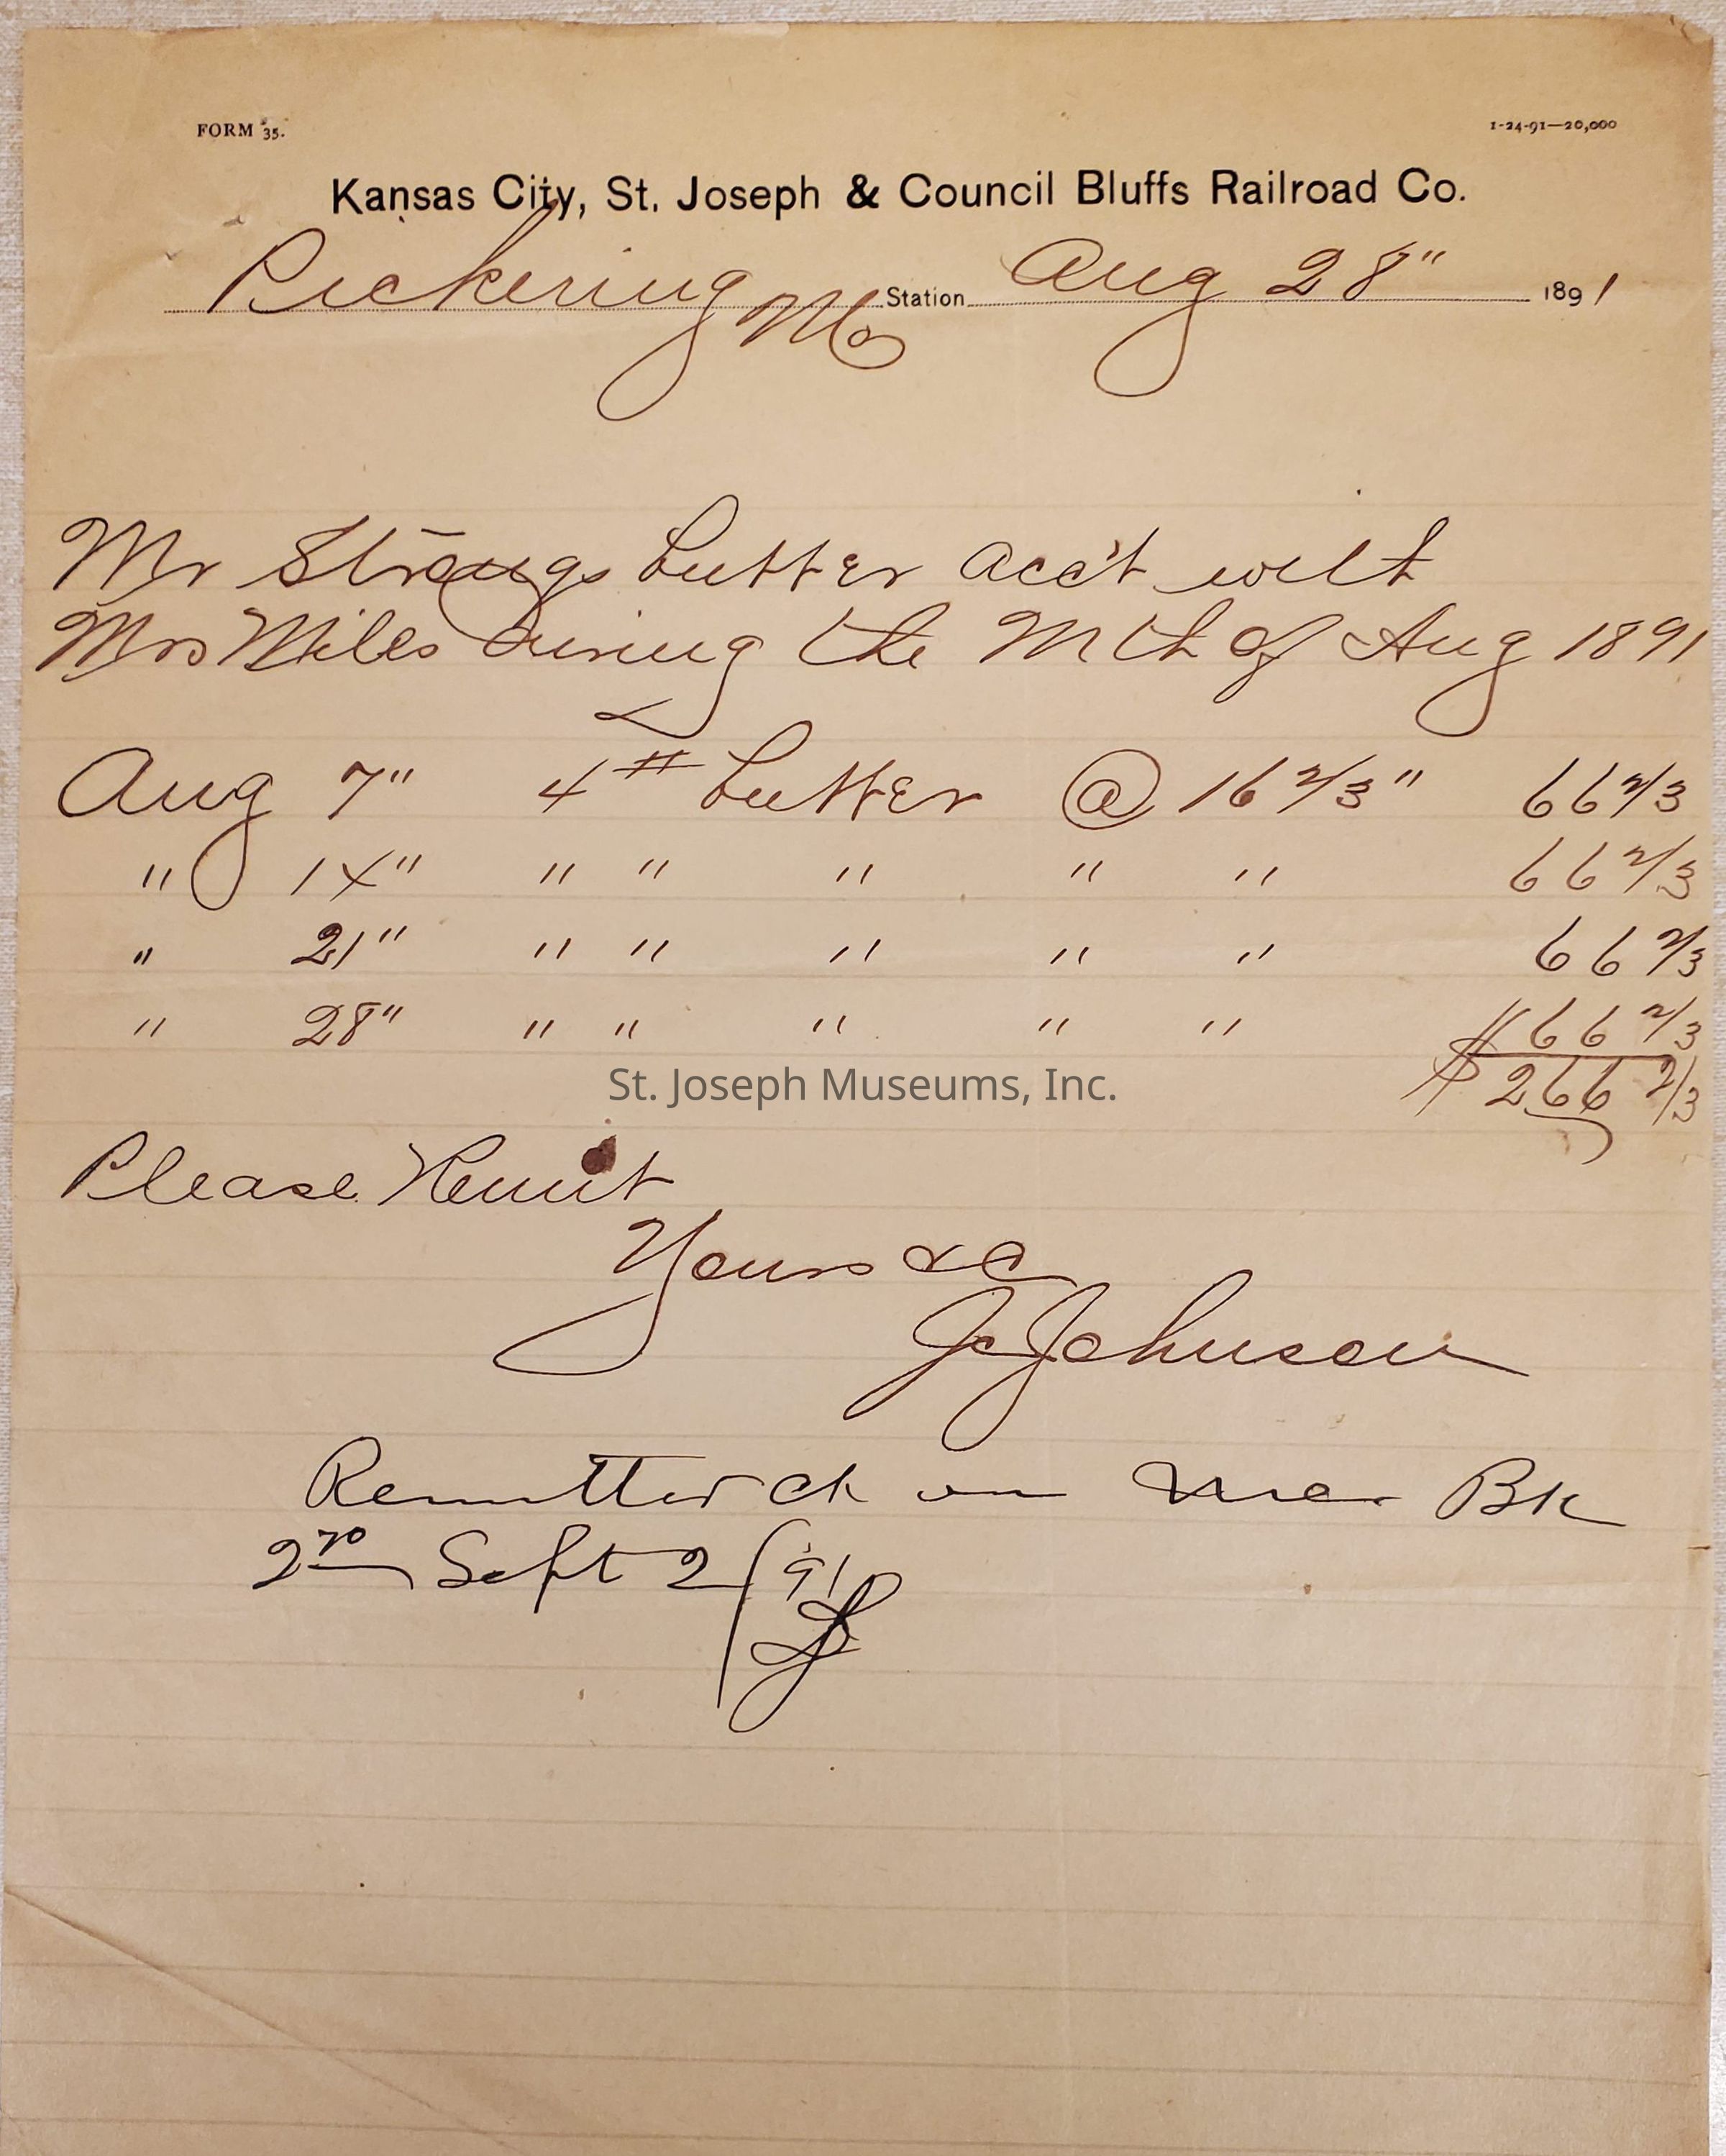 FORM 35.
1-24-91—20,000
Kansas City, St. Joseph & Council Bluffs Railroad Co.
Pickering Mo Station Aug 28" 1891
Mr Strongs butter acc't with
Mrs Miles during the Mth of Aug 1891
Aug 7" 4# butter @ 16 2/3" 66 2/3
" 14" " " " " " 66 2/3
" 21" " " " " " 66 2/3
" 28" " " " " " 66 2/3
$266 2/3
St. Joseph Museums, Inc.
Please Remit
Yours &c
Johnson
Remitted ch on Bk
2nd Sept 2/91